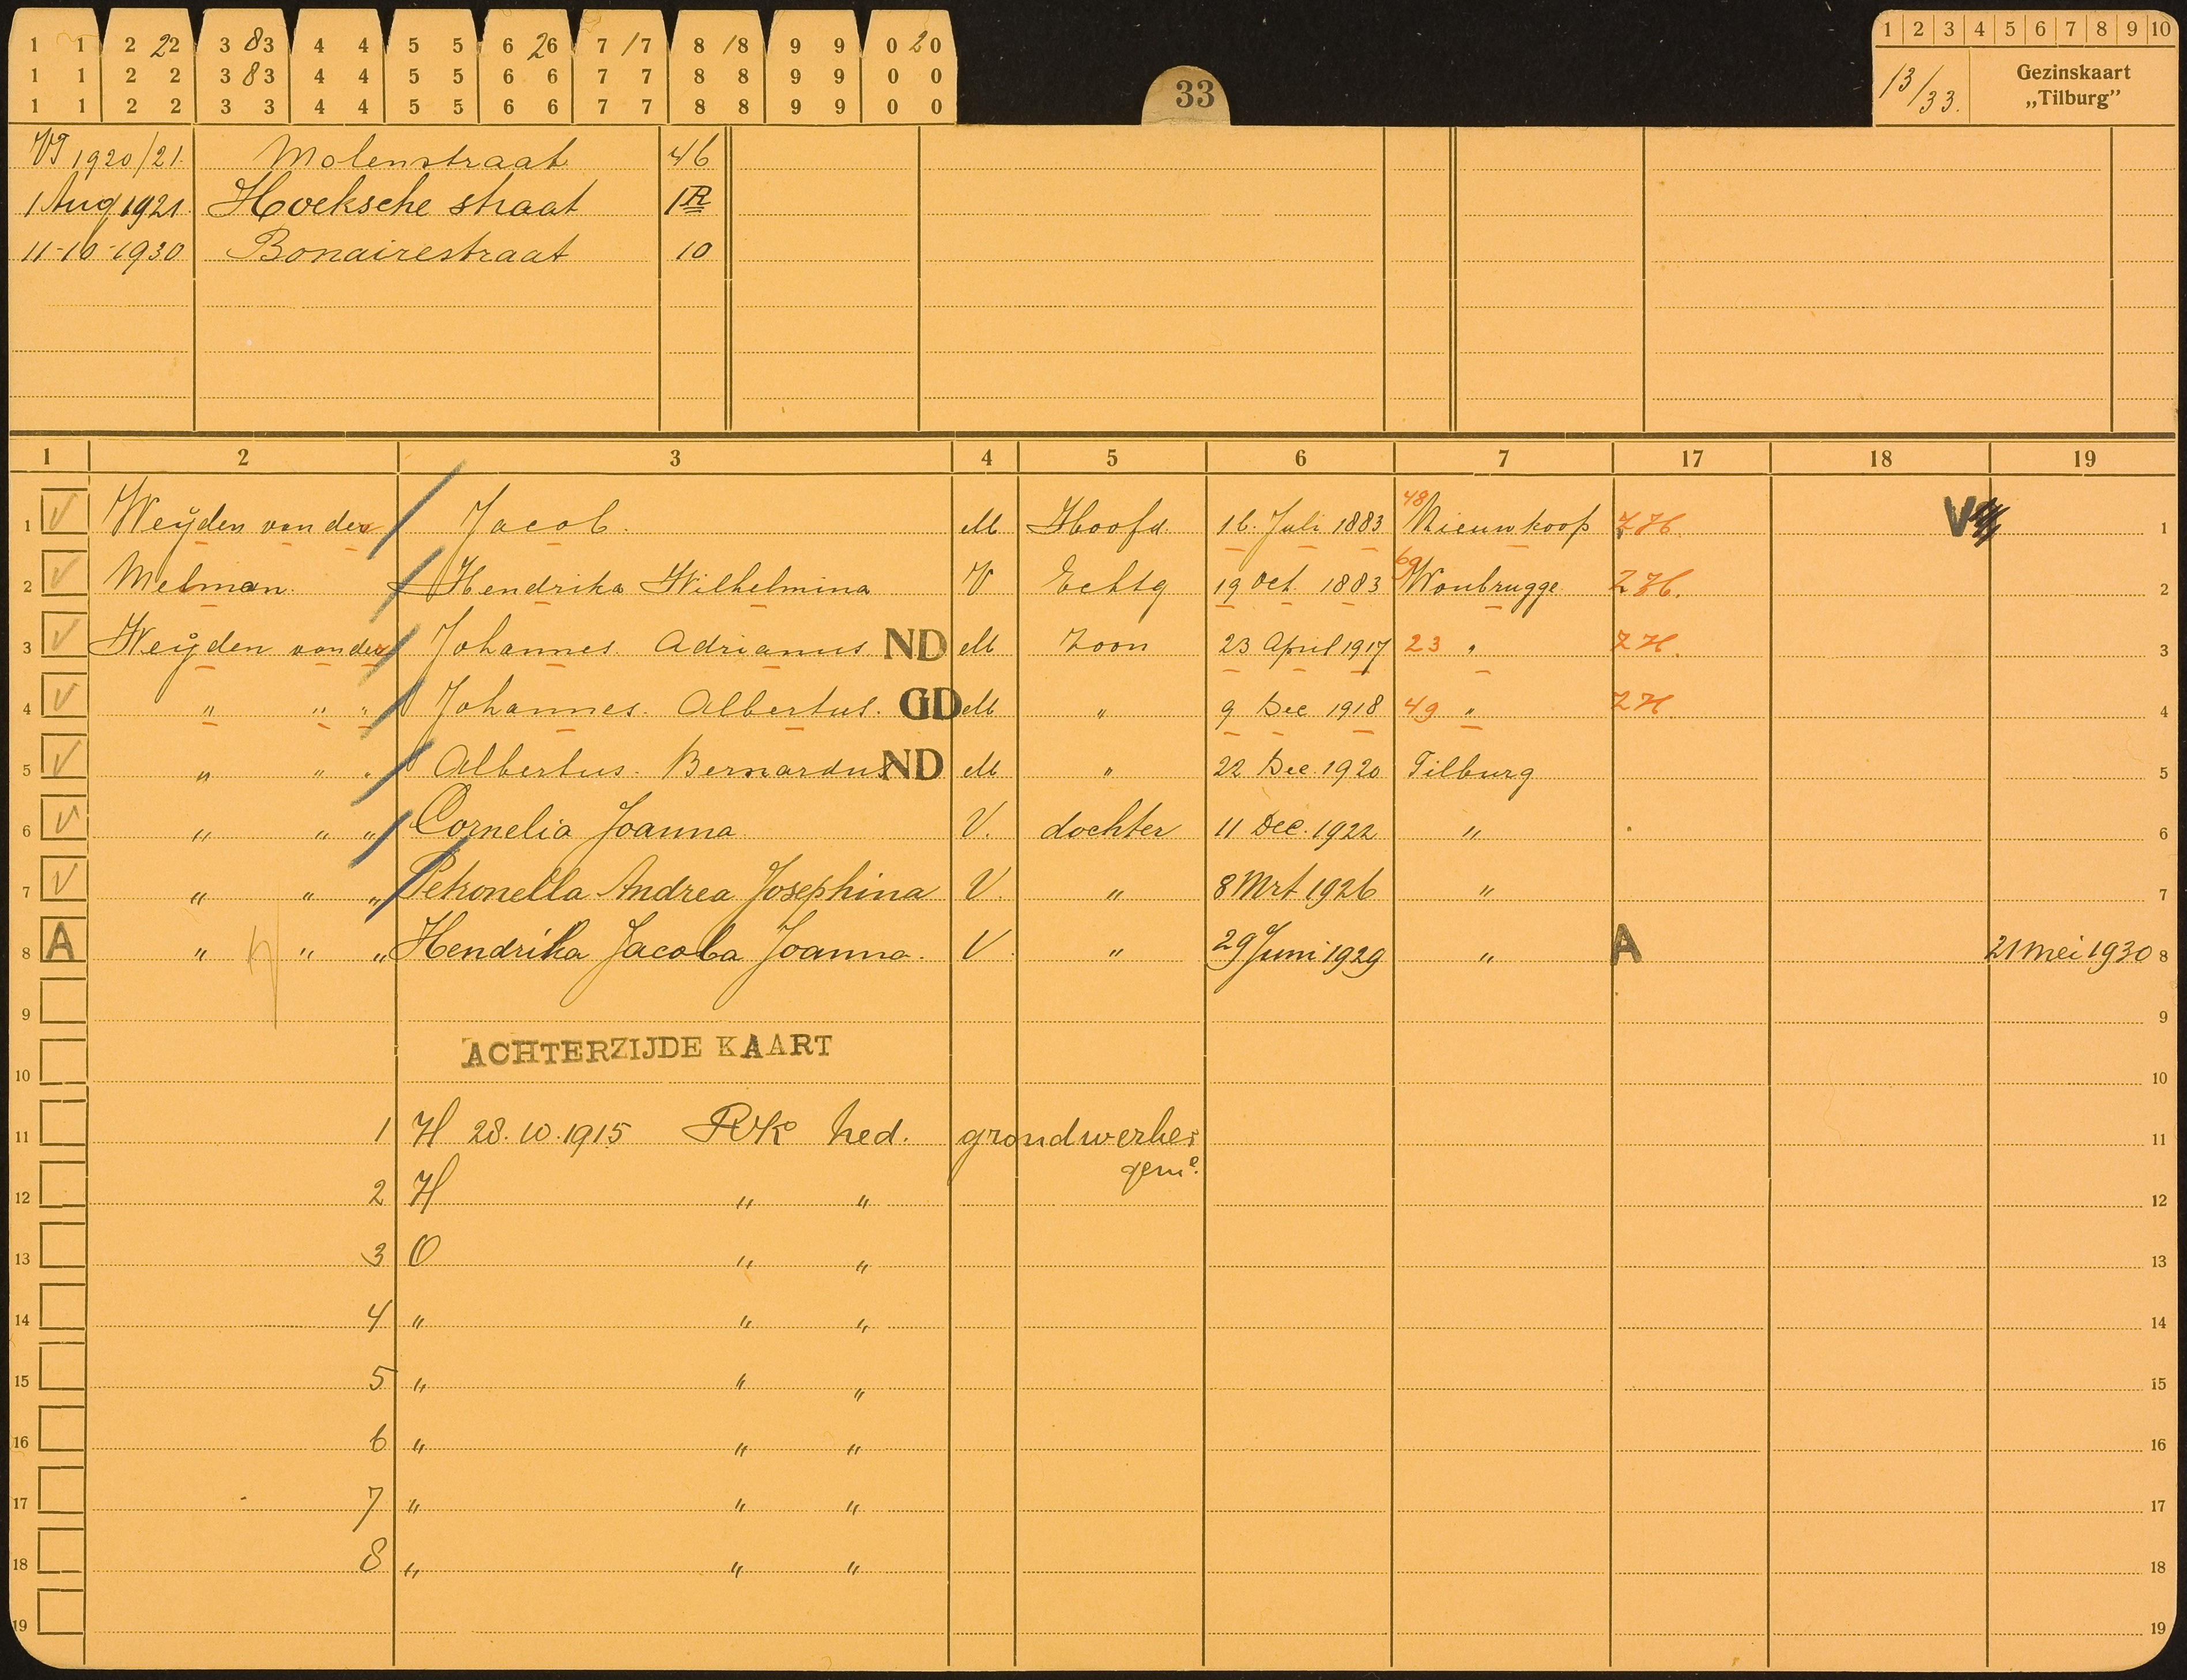 1 1 2 22 2 3 8 3 4 4 5 5 6 2 6 7 1 7 8 1 8 9 9 0 2 0
1 1 2 2 3 8 3 4 4 5 5 6 6 7 7 8 8 9 9 0 0
1 1 2 2 3 3 4 4 5 5 6 6 7 7 8 8 9 9 0 0
33
1 2 3 4 5 6 7 8 9 10
13/33. Gezinskaart
„Tilburg”
VT 1920/21. Molenstraat 46
1 Aug 1921. Hoeksche straat 1R
11-10-1930 Bonairestraat 10
1 2 3 4 5 6 7 17 18 19
1 V Weyden van der Jacob. M Hoofd 16. Juli 1883 48 Nieuwkoop ZH. V 1
2 V Melman. Hendrika Wilhelmina V Echtg 19 Oct. 1883 69 Woubrugge ZH. 2
3 V Weyden van der Johannes Adrianus ND M Zoon 23 April 1917 23 " ZH. 3
4 V " " " Johannes. Albertus. GD M " 9 Dec 1918 49 " ZH 4
5 V " " " Albertus. Bernardus ND M " 22 Dec. 1920 Tilburg 5
6 V " " " Cornelia Joanna V. dochter 11 Dec. 1922 " 6
7 V " " " Petronella Andrea Josephina V. " 8 Mrt 1926 " 7
8 A " " " Hendrika Jacoba Joanna. V " 29 Juni 1929 " A 21 mei 1930 8
9 9
ACHTERZIJDE KAART
10 10
11 1 H 28.10.1915 RK Ned. grondwerker 11
gem.
12 2 H " " 12
13 3 O " " 13
14 4 " " " 14
15 5 " " " 15
16 6 " " " 16
17 7 " " " 17
18 8 " " " 18
19 19